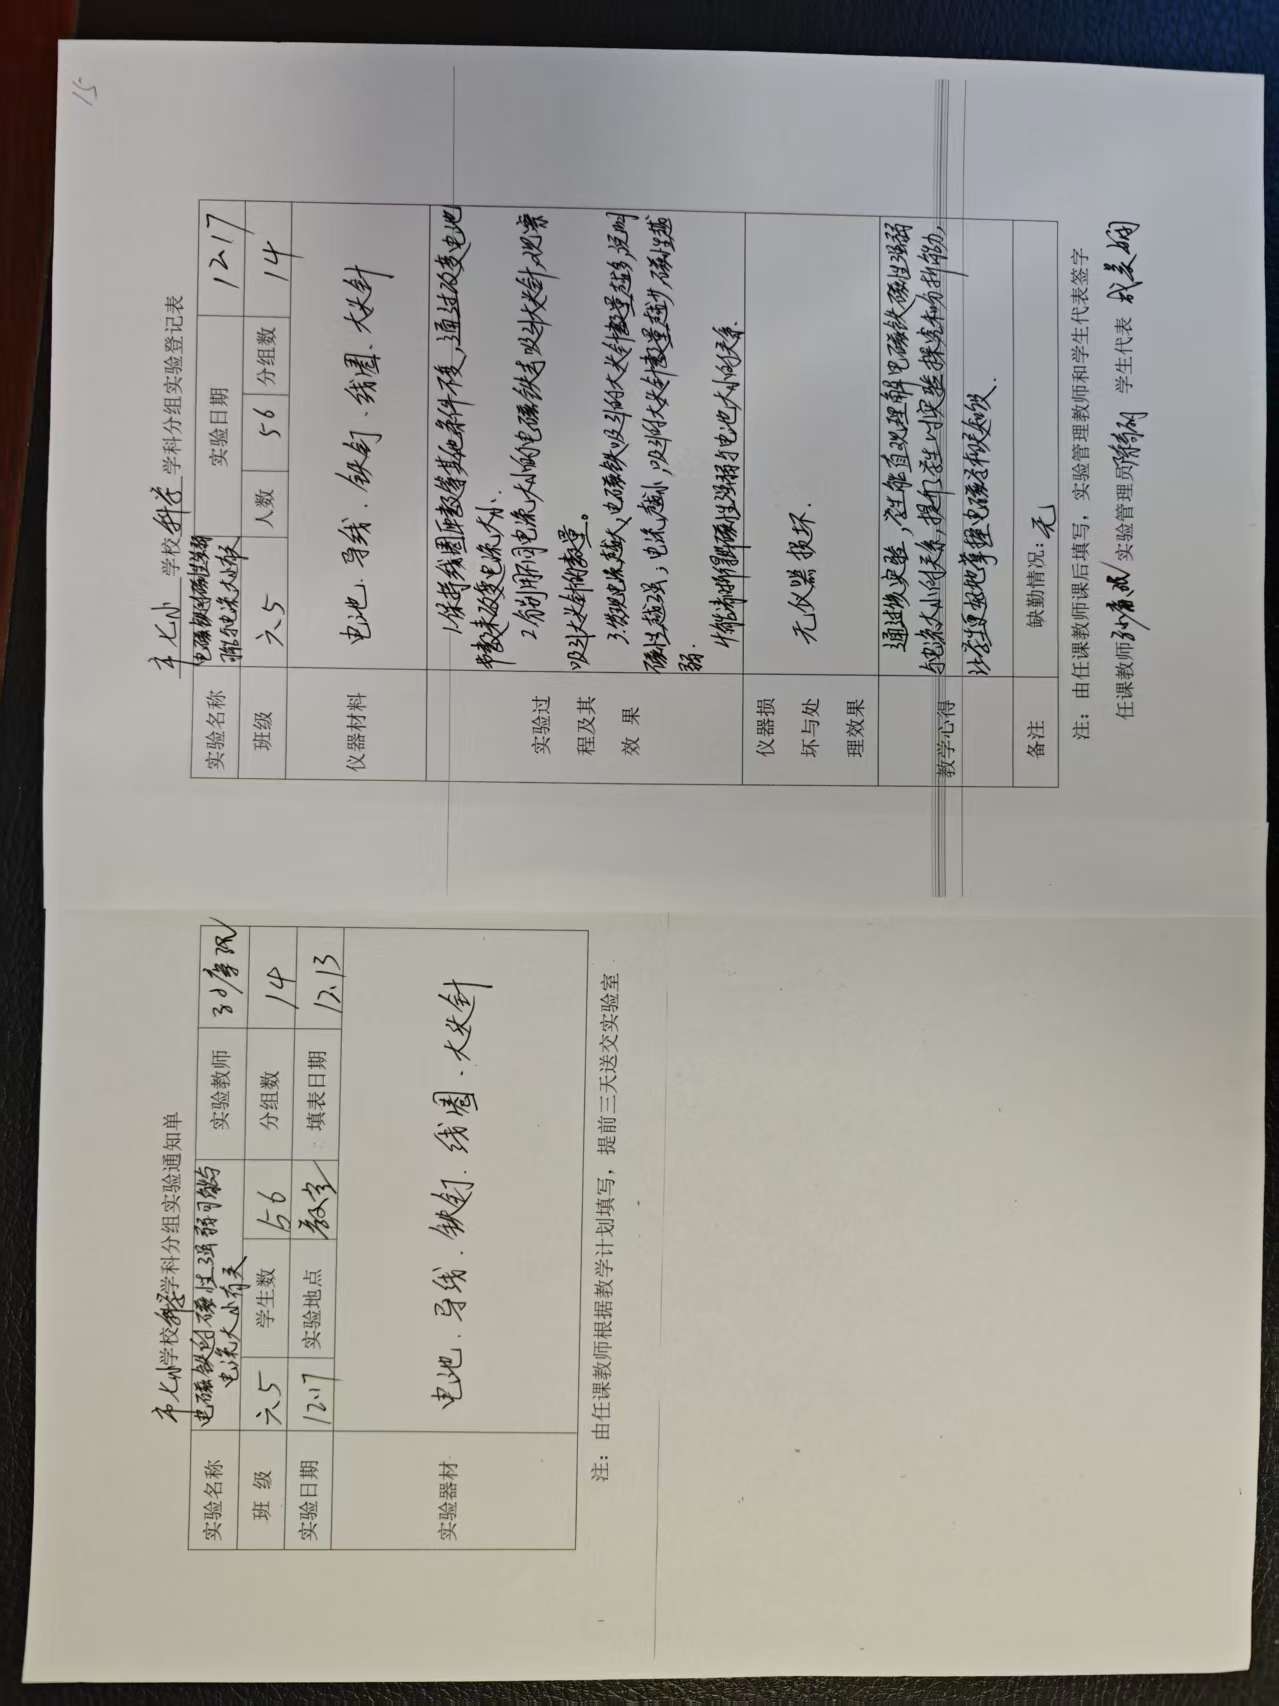 市七小学校科学学科分组实验通知单
实验名称 电磁铁的磁性强弱可能与
电流大小有关 实验教师
班 级 六5 学生数 56 分组数 14
实验日期 12.17 实验地点 教室 填表日期 12.13
实验器材 电池、导线、铁钉、线圈、大头针
注：由任课教师根据教学计划填写，提前三天送交实验室
15
市七小 学校科学学科分组实验登记表
实验名称 电磁铁的磁性强弱
可能与电流大小有关 实验日期 12.17
班级 六5 人数 56 分组数 14
仪器材料 电池、导线、铁钉、线圈、大头针
实验过
程及其
效 果
1.保持线圈匝数等其他条件不变，通过改变电池
节数来改变电流大小.
2.分别用不同电流大小的电磁铁去吸引大头针,观察
吸引大头针的数量。
3.发现电流越大,电磁铁吸引的大头针数量越多,说明
磁性越强；电流越小,吸引的大头针数量越少,磁性越
弱.
磁性强弱与电池大小的关系.
仪器损
坏与处
理效果
无仪器损坏.
教学心得
通过此次实验，学生能直观理解电磁铁磁性强弱
与电流大小的关系,提升了学生的实验探究和分析能力,
让学生更好地掌握电磁学相关知识.
备注 缺勤情况：无
注：由任课教师课后填写，实验管理教师和学生代表签字
任课教师 实验管理员 学生代表